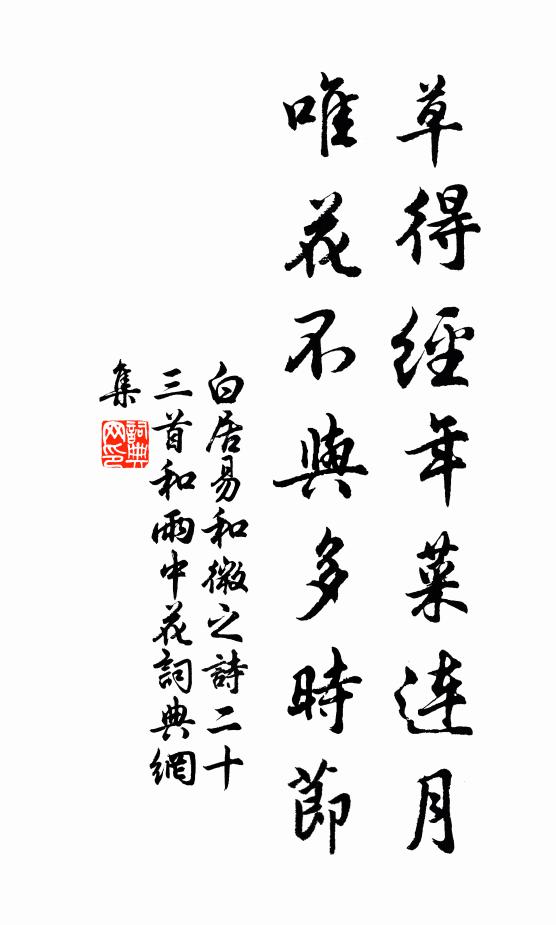 草得經年菜連月
唯花不與多時節
白居易和微之詩二十
三首和雨中花詞典網
集
詞典
网印